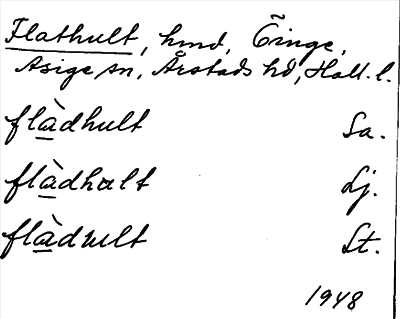 Flathult, hmd, Öinge,
Asige sn, Årstads hd, Hall. l.
flàdhult Sa.
flàdhult Lj.
flàdult St.
1948